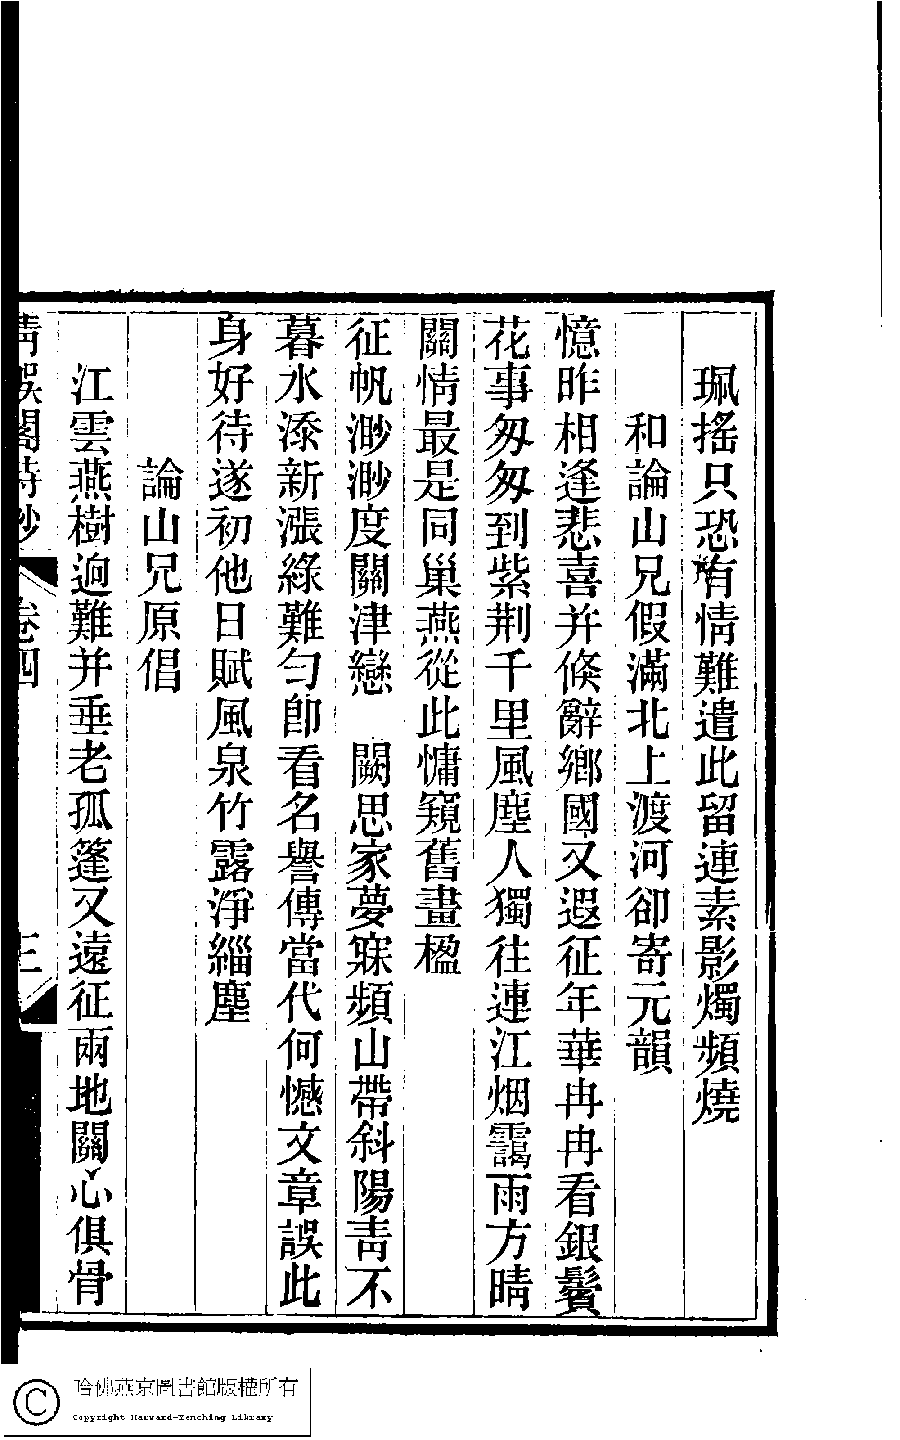 珮搖只恐有情難遣此留連素影燭頻燒
和論山兄假滿北上渡河卻寄元韻
憶昨相逢悲喜并倏辭鄉國又遐征年華冉冉看銀鬢
花事匆匆到紫荆千里風塵人獨往連江烟靄雨方晴
關情最是同巢燕從此慵窺舊畫楹
征帆渺渺度關津戀 闕思家夢寐頻山帶斜陽靑不
暮水添新漲綠難勻卽看名譽傳當代何憾文章誤此
身好待遂初他日賦風泉竹露淨緇塵
論山兄原倡
江雲燕樹逈難并垂老孤篷又遠征兩地關心俱骨
卷四
三
哈佛燕京圖書館版權所有
Copyright Harvard-Yenching Library